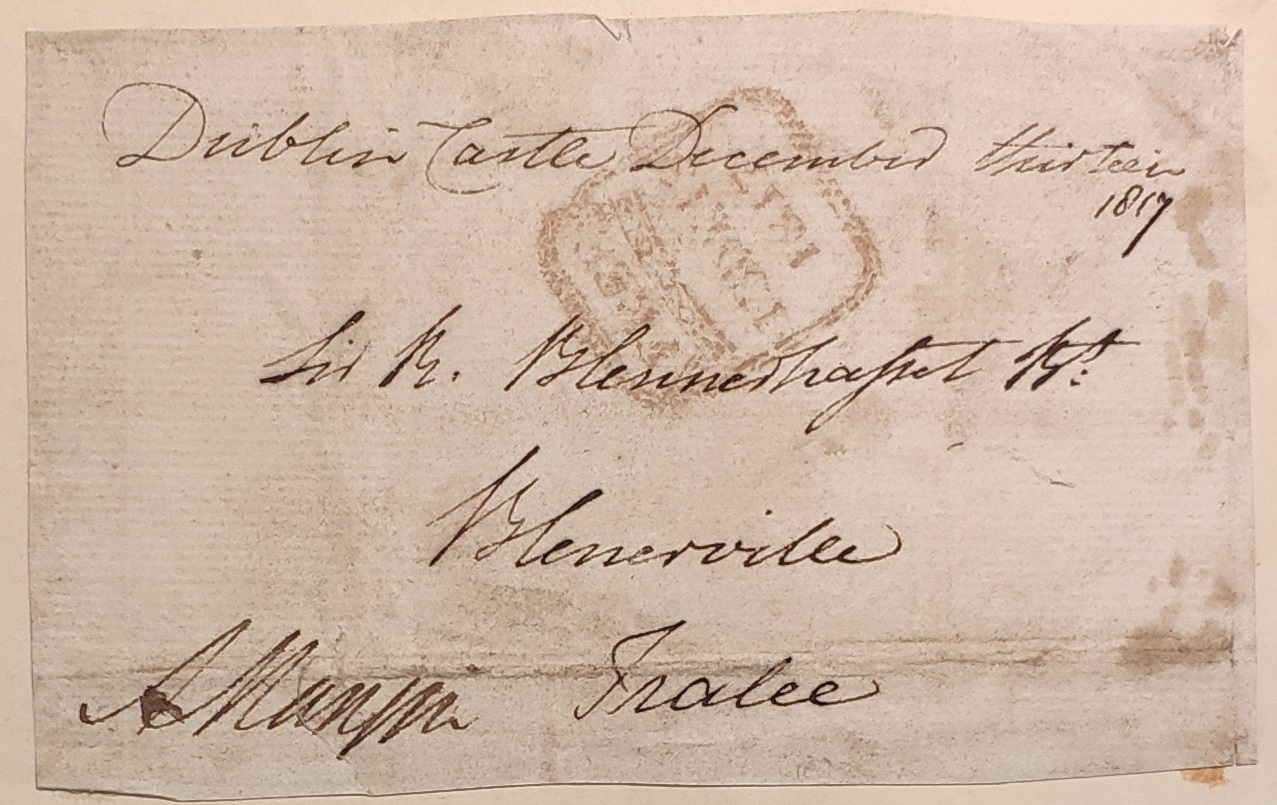 Dublin Castle December thirteen
1817
Sir R. Blennerhasset Bt.
Blenerville
Tralee